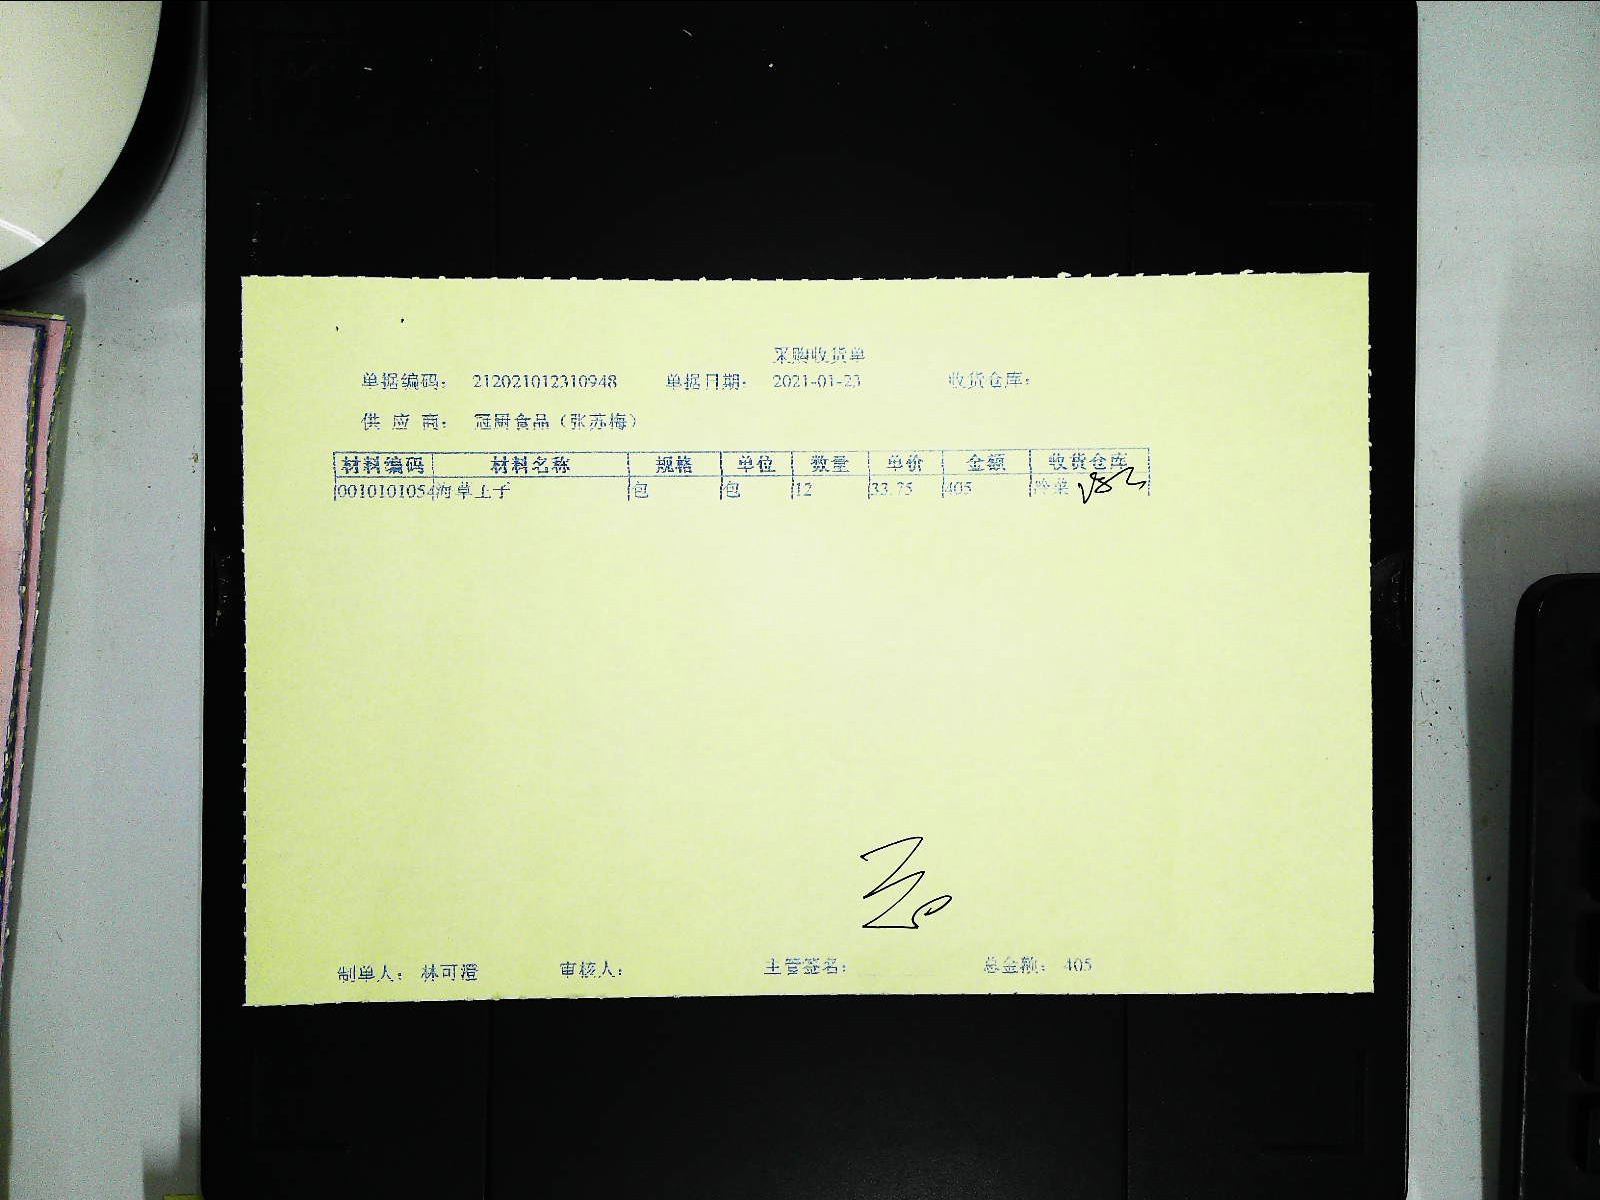 采购收货单
单据编码： 212021012310948 单据日期： 2021-01-23 收货仓库：
供 应 商： 冠厨食品（张苏梅）
材料编码 材料名称 规格 单位 数量 单价 金额 收货仓库
0010101054 海草上子 包 包 12 33.75 405 冷菜
制单人： 林可澄 审核人： 主管签名： 总金额： 405